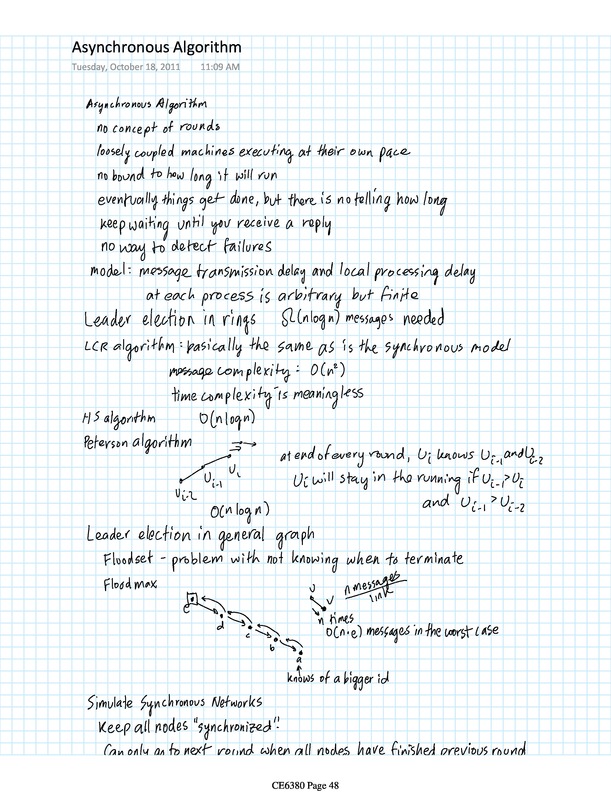 Asynchronous Algorithm
Tuesday, October 18, 2011 11:09 AM
Asynchronous Algorithm
no concept of rounds
loosely coupled machines executing at their own pace
no bound to how long it will run
eventually things get done, but there is no telling how long
keep waiting until you receive a reply
no way to detect failures
model: message transmission delay and local processing delay
at each process is arbitrary but finite
Leader election in rings Ω(nlogn) messages needed
LCR algorithm: basically the same as is the synchronous model
message complexity: O(n²)
time complexity is meaningless
HS algorithm O(nlogn)
Peterson algorithm
U_i-2 U_i-1 U_i
at end of every round, U_i knows U_i-1 and U_i-2
U_i will stay in the running if U_i-1 > U_i
and U_i-1 > U_i-2
O(nlogn)
Leader election in general graph
Floodset - problem with not knowing when to terminate
Floodmax
e d c b a
knows of a bigger id
u v n messages/link
n times
O(n·e) messages in the worst case
Simulate Synchronous Networks
Keep all nodes "synchronized"!
Can only go to next round when all nodes have finished previous round
CE6380 Page 48